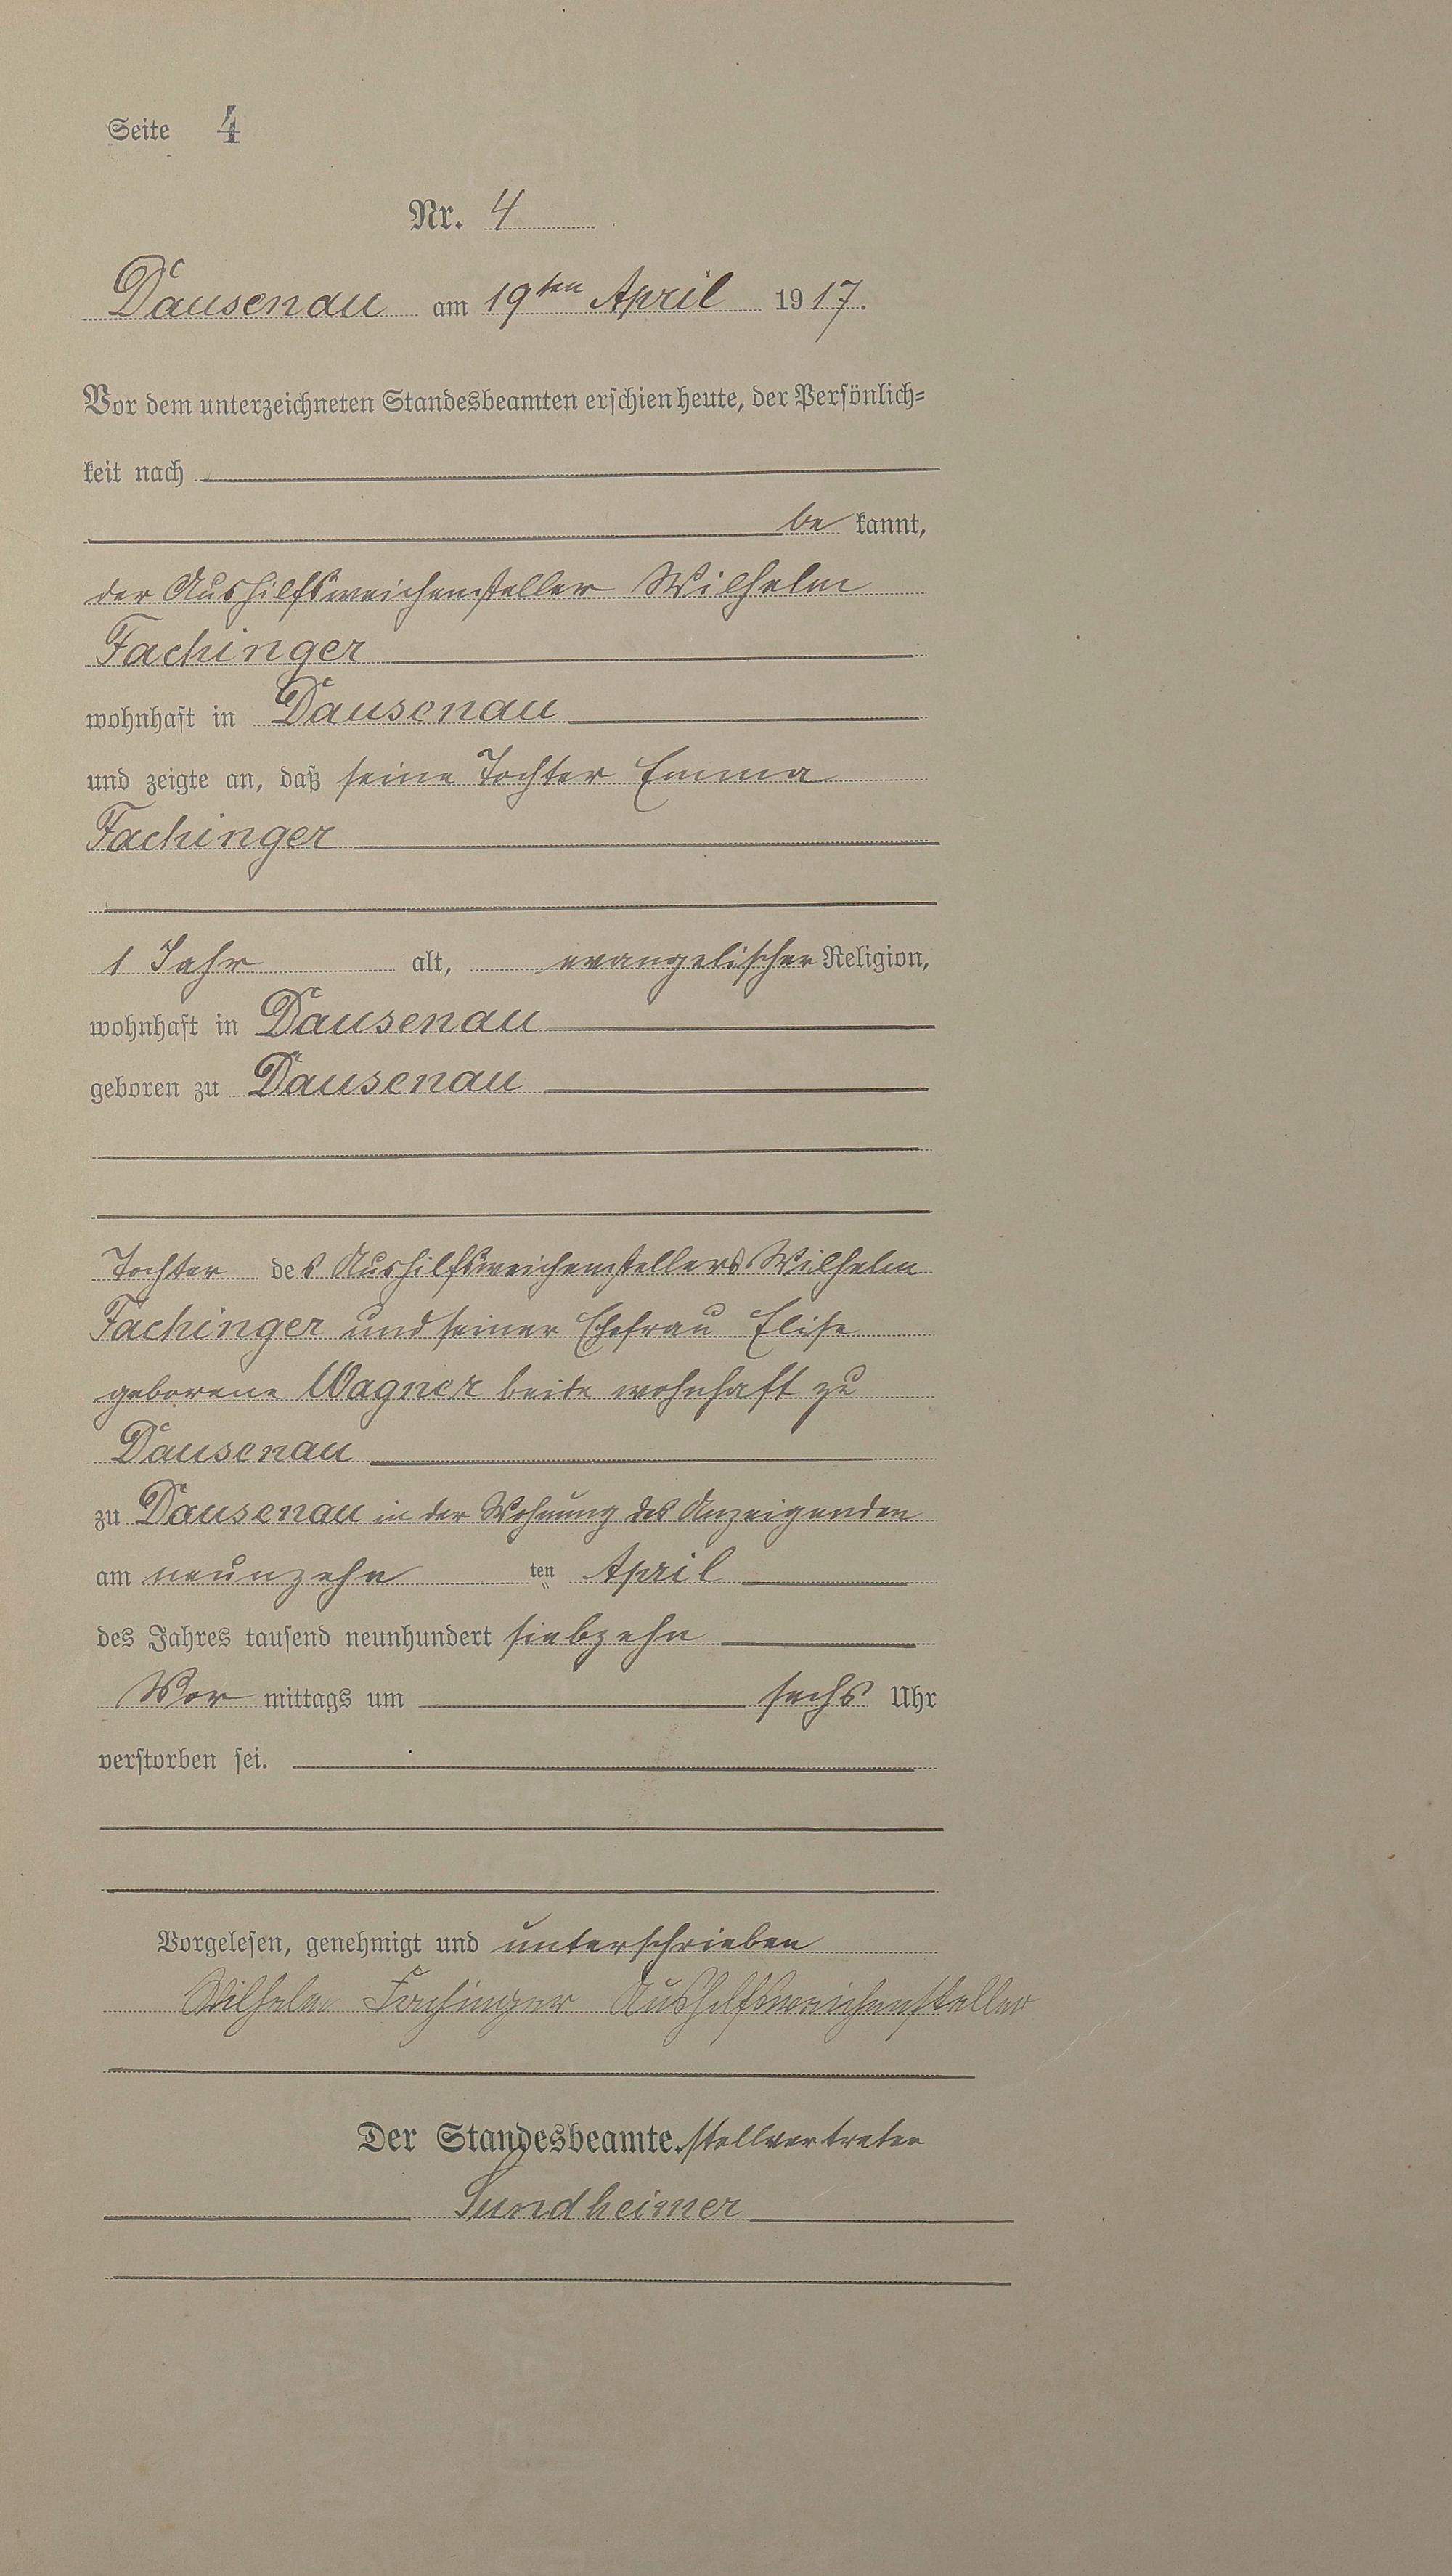 Seite 4
Nr. 4
Dausenau am 19ten April 1917.
Vor dem unterzeichneten Standesbeamten erschien heute, der Persönlich-
keit nach
be kannt,
der Aushilfsweichensteller Wilhelm
Fachinger
wohnhaft in Dausenau
und zeigte an, daß seine Tochter Emma
Fachinger
1 Jahr alt, evangelischer Religion,
wohnhaft in Dausenau
geboren zu Dausenau
Tochter des Aushilfsweichenstellers Wilhelm
Fachinger und seiner Ehefrau Elise
geborene Wagner beide wohnhaft zu
Dausenau
zu Dausenau in der Wohnung des Anzeigenden
am neunzehn ten April
des Jahres tausend neunhundert siebzehn
Vor mittags um sechs Uhr
verstorben sei.
Vorgelesen, genehmigt und unterschrieben
Wilhelm Fachinger Aushilfsweichensteller
Der Standesbeamte.stellvertreter
Sundheimer